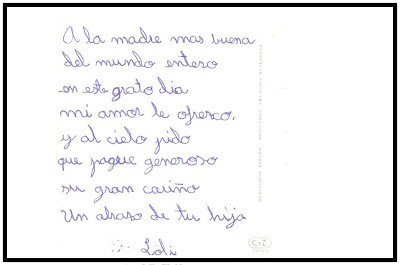 A la madre mas buena
del mundo entero
en este grato dia
mi amor le ofresco.
y al cielo pido
que pague generoso
su gran cariño
Un abraso de tu hija
Loli
C y Z